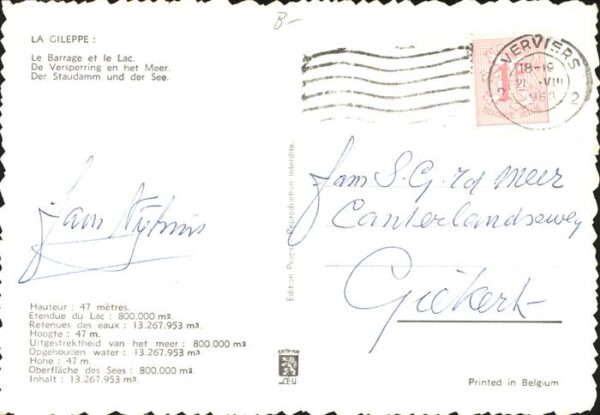 B-
LA GILEPPE :
Le Barrage et le Lac.
De Versperring en het Meer.
Der Staudamm und der See.
VERVIERS
18-19
VIII
2 2
1F
Fam S.G. vd Meer
Canterlandseweg
Giekerk
Fam Nijhuis
Edition Reproduction interdite.
Hauteur : 47 mètres.
Etendue du Lac : 800.000 m2.
Retenues des eaux : 13.267.953 m3.
Hoogte : 47 m.
Uitgestrektheid van het meer : 800.000 m2.
Opgehouden water : 13.267.953 m3.
Hohe : 47 m.
Oberfläche des Sees : 800.000 m2.
Inhalt : 13.267.953 m3.
Printed in Belgium